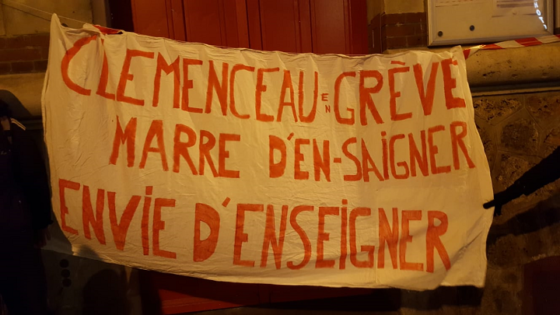 CLEMENCEAU EN GRÈVE
MARRE D'EN-SAIGNER
ENVIE D'ENSEIGNER